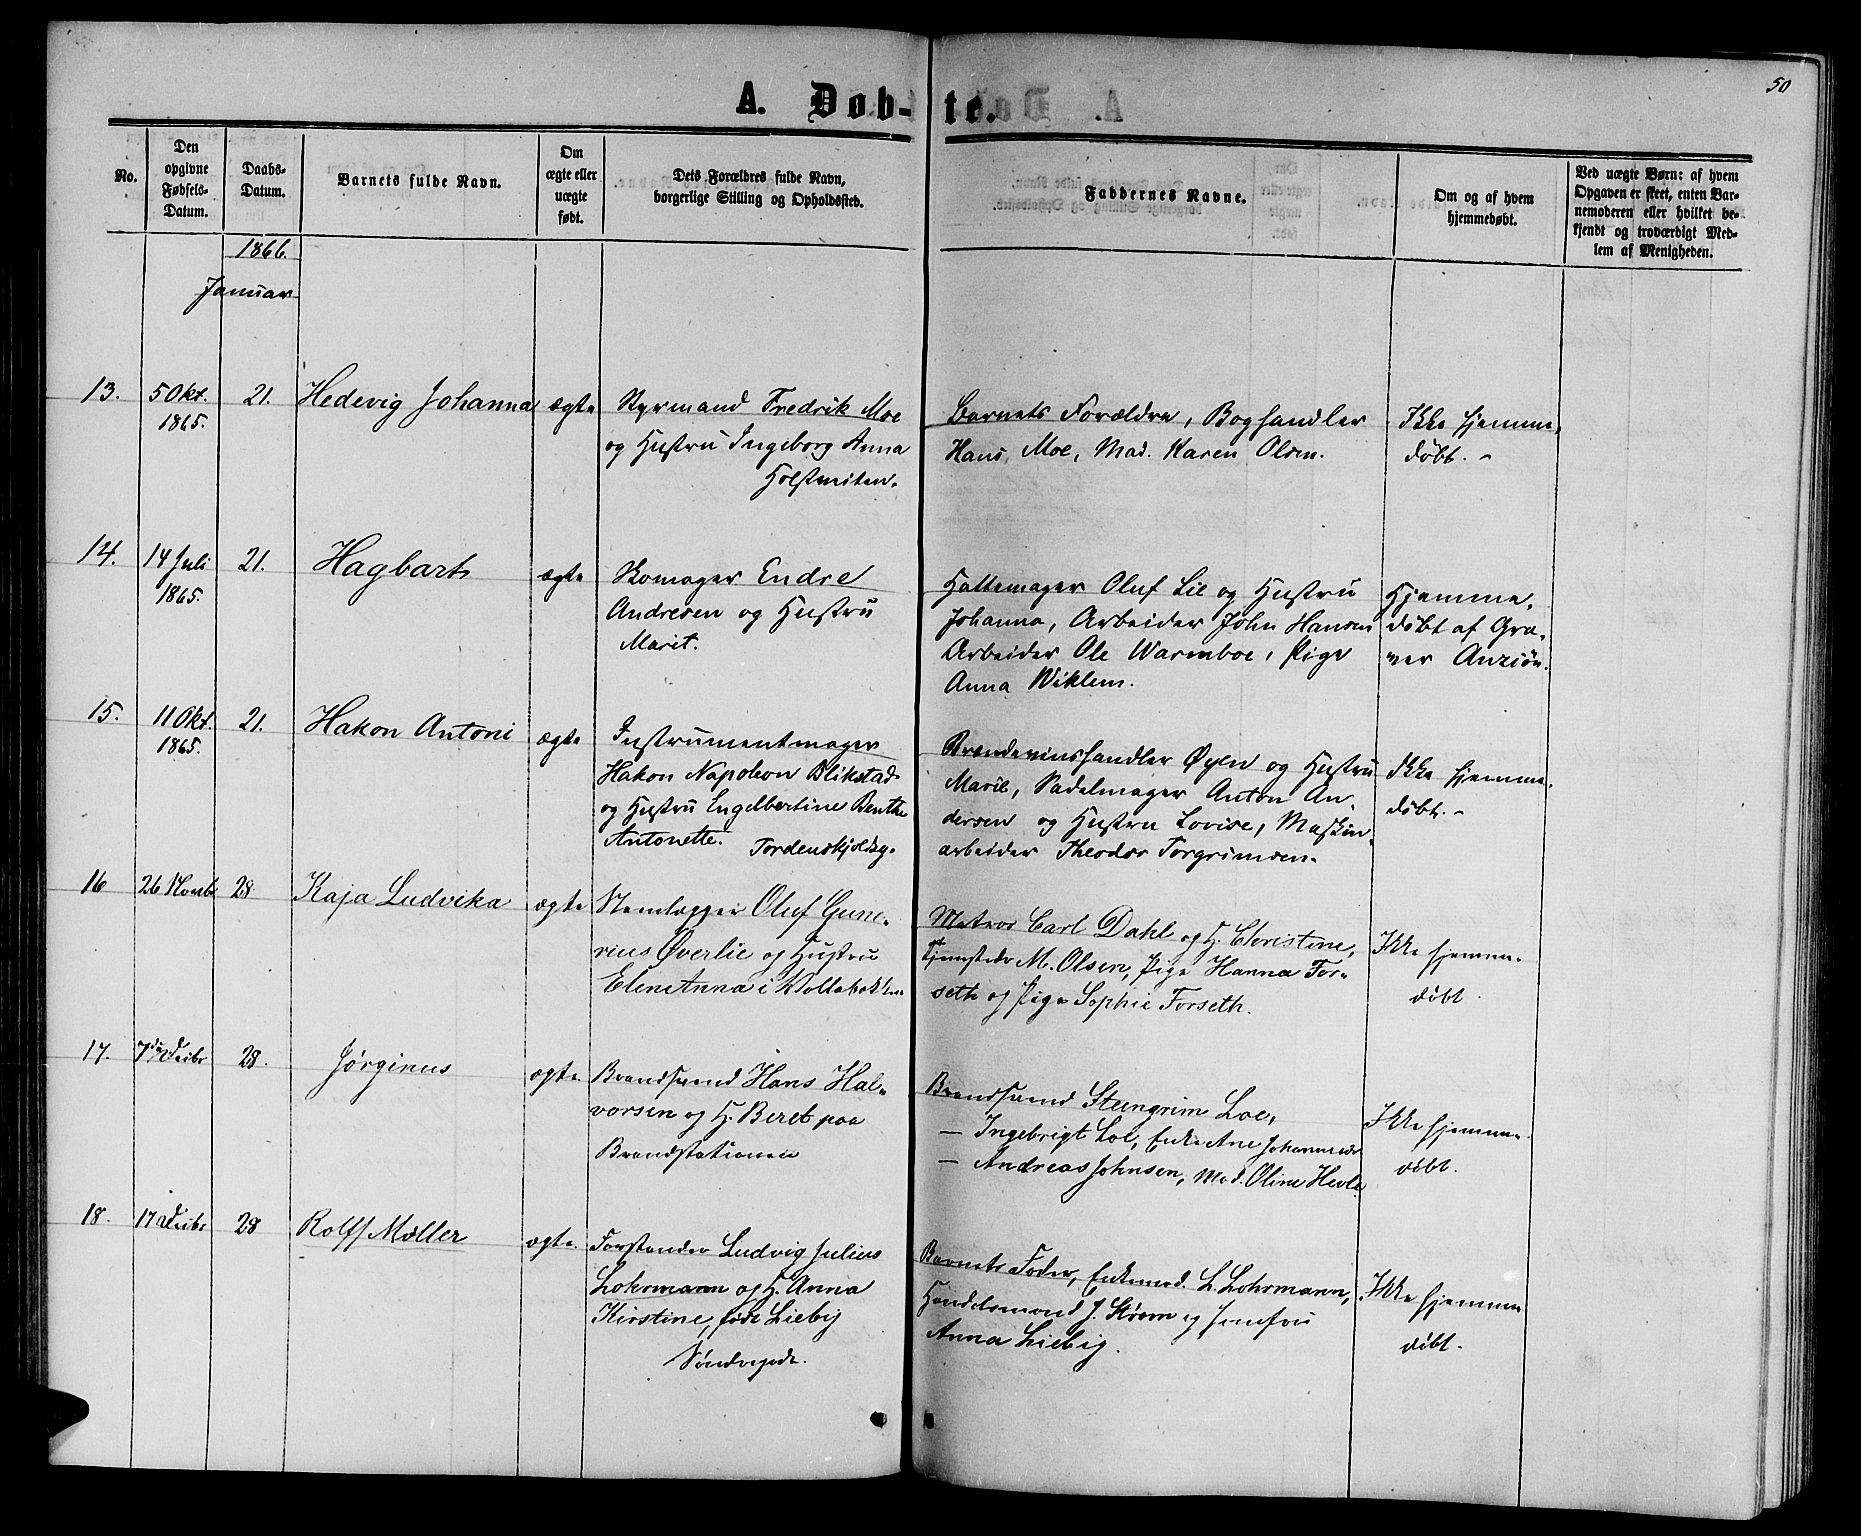 50
A. Døb-te.
No.
Den opgivne Fødsels-Datum.
Daabs-Datum.
Barnets fulde Navn.
Om ægte eller uægte født.
Dets Forældres fulde Navn, borgerlige Stilling og Opholdssted.
Faddernes Navne.
Om og af hvem hjemmedøbt.
Ved uægte Børn: af hvem Opgaven er skeet, enten Barnemoderen eller hvilket bekjendt og troværdigt Medlem af Menigheden.
1866.
Januar
13. 5 Okt. 1865. 21. Hedevig Johanna ægte
Styrmand Fredrik Moe
og Hustru Ingeborg Anna
Barnets Forældre, Boghandler
Hans Moe, Mad. Karen Olsen.
Ikke hjemme,
døbt. -
14. 14 Juli 1865. 21. Hagbart ægte
Skomager Endre
Andresen og Hustru
Marit.
Hattemager Oluf Lie og Hustru
Johanna, Arbeider John Hansen
Arbeider Ole Warmboe, Pige
Anna Wiklem.
Hjemme,
døbt af Gra-
ver
15. 11 Okt. 1865. 21. Hakon Antoni ægte
Instrumentmager
Hakon Napoleon Blikstad
og Hustru Engelbertine Benthe
Antonette. Tordenskjoldsg.
Brændevinshandler Øyen og Hustru
Marie, Sadelmager Anton An-
dersen og Hustru Lovise, Maskin-
arbeider Theodor Torgrimsen.
Ikke hjemme,
døbt. -
16 26 Novbr 28 Kaja Ludvika ægte
Stenlægger Oluf Gune-
rius Øverlie og Hustru
Elen Anna i Vollabakken
Matros Carl Dahl og H. Christine,
Tjenestedr M. Olsen, Pige Hanna For-
seth og Pige Sophie Forseth.
Ikke hjemme-
døbt.
17. 7de Decbr 28. Jørginus ægte.
Brandsvend Hans Hal-
vorsen og H. Beret paa
Brandstationen
Brandsvend Steengrim Loe,
— Ingebrigt Loe, Enke Ane Johannesdr
— Andreas Johnsen, Mad. Oline Hevle
Ikke hjemme-
døbt.
18. 17 Decbr 28 Rolff Møller ægte.
Forstander Ludvig Julius
Lohrmann og H. Anna
Kirstine, født Liebig
Barnets Fader, Enkemad. L. Lohrmann,
Handelsmand J. Storm og Jomfru
Anna Liebig.
Ikke hjemme
døbt.